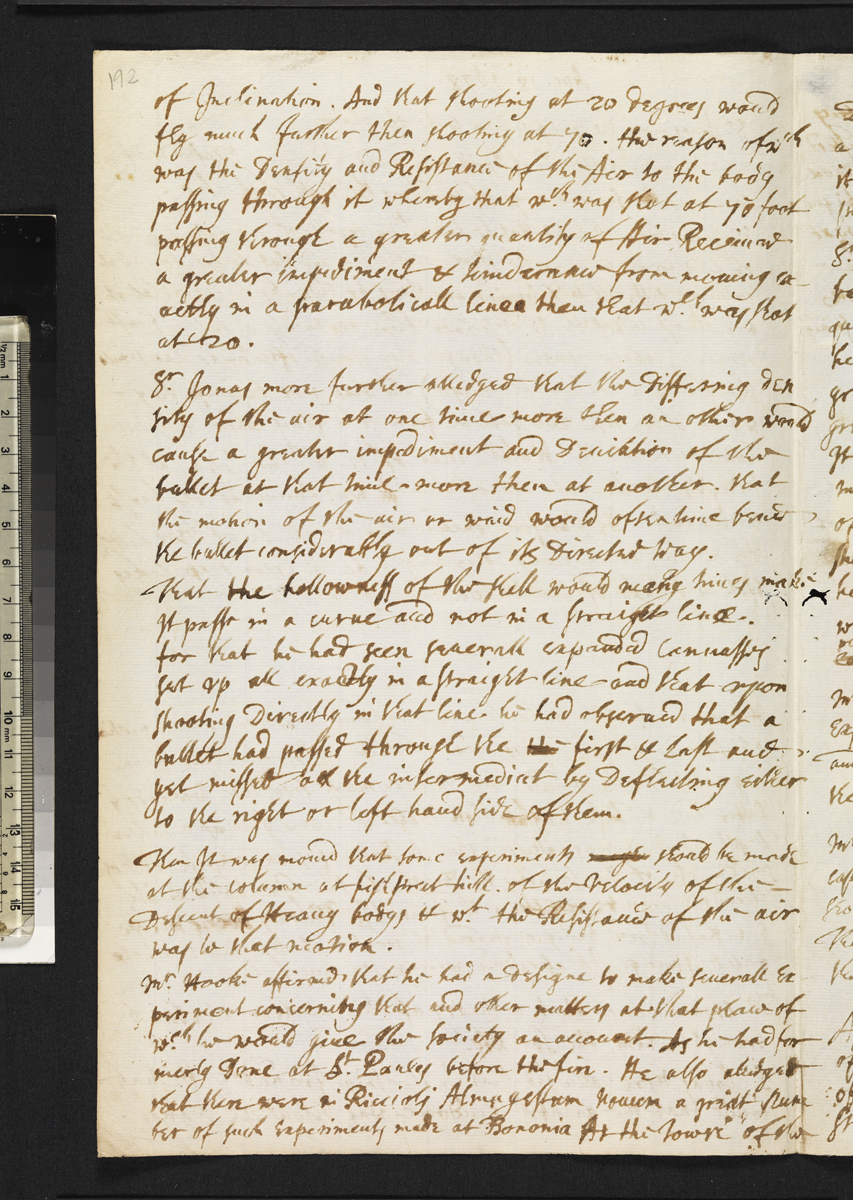 192
of Inclination. And that shooting at 20 degrees would
fly much further then shooting at 70. the reason of wch
was the Density and Resistance of the Air to the body
passing through it whereby that wch was shot at 70 foot
passing through a greater quantity of Air Received
a greater impediment & hinderance from moving ex
actly in a parabolicall line then that wch was shot
at 20.
Sr. Jonas more further alledged that the differing den
sity of the air at one time more then an other would
cause a greater impediment and Deviation of the
bullet at that time more then at another. that
the motion of the air or wind would often time bend
the bullet considerably out of its Directed way.
that the hollowness of the shell would many times make
It passe in a curve and not in a straight line.
for that he had seen severall expanded Canvasses
set up all exactly in a straight line and that upon
shooting Directly in that line he had observed that a
bullet had passed through the the first & last and
yet missed all the intermediat by Deflecting either
to the right or left hand side of them.
Then It was moved that some experiments should be made
at the column at fishstreet hill. of the Velocity of the
Descent of Heavy bodys & wt the Resistance of the air
was to that motion.
Mr. Hooke affirmd that he had a designe to make severall Ex
periment concerning that and other matters at that place of
wch he would give the society an account. As he had for
merly Done at St. Paules before the fire. He also alledged
that there were in Ricciolj Almagestum novum a great num
ber of such experiments made at Bononia At the Towre of the